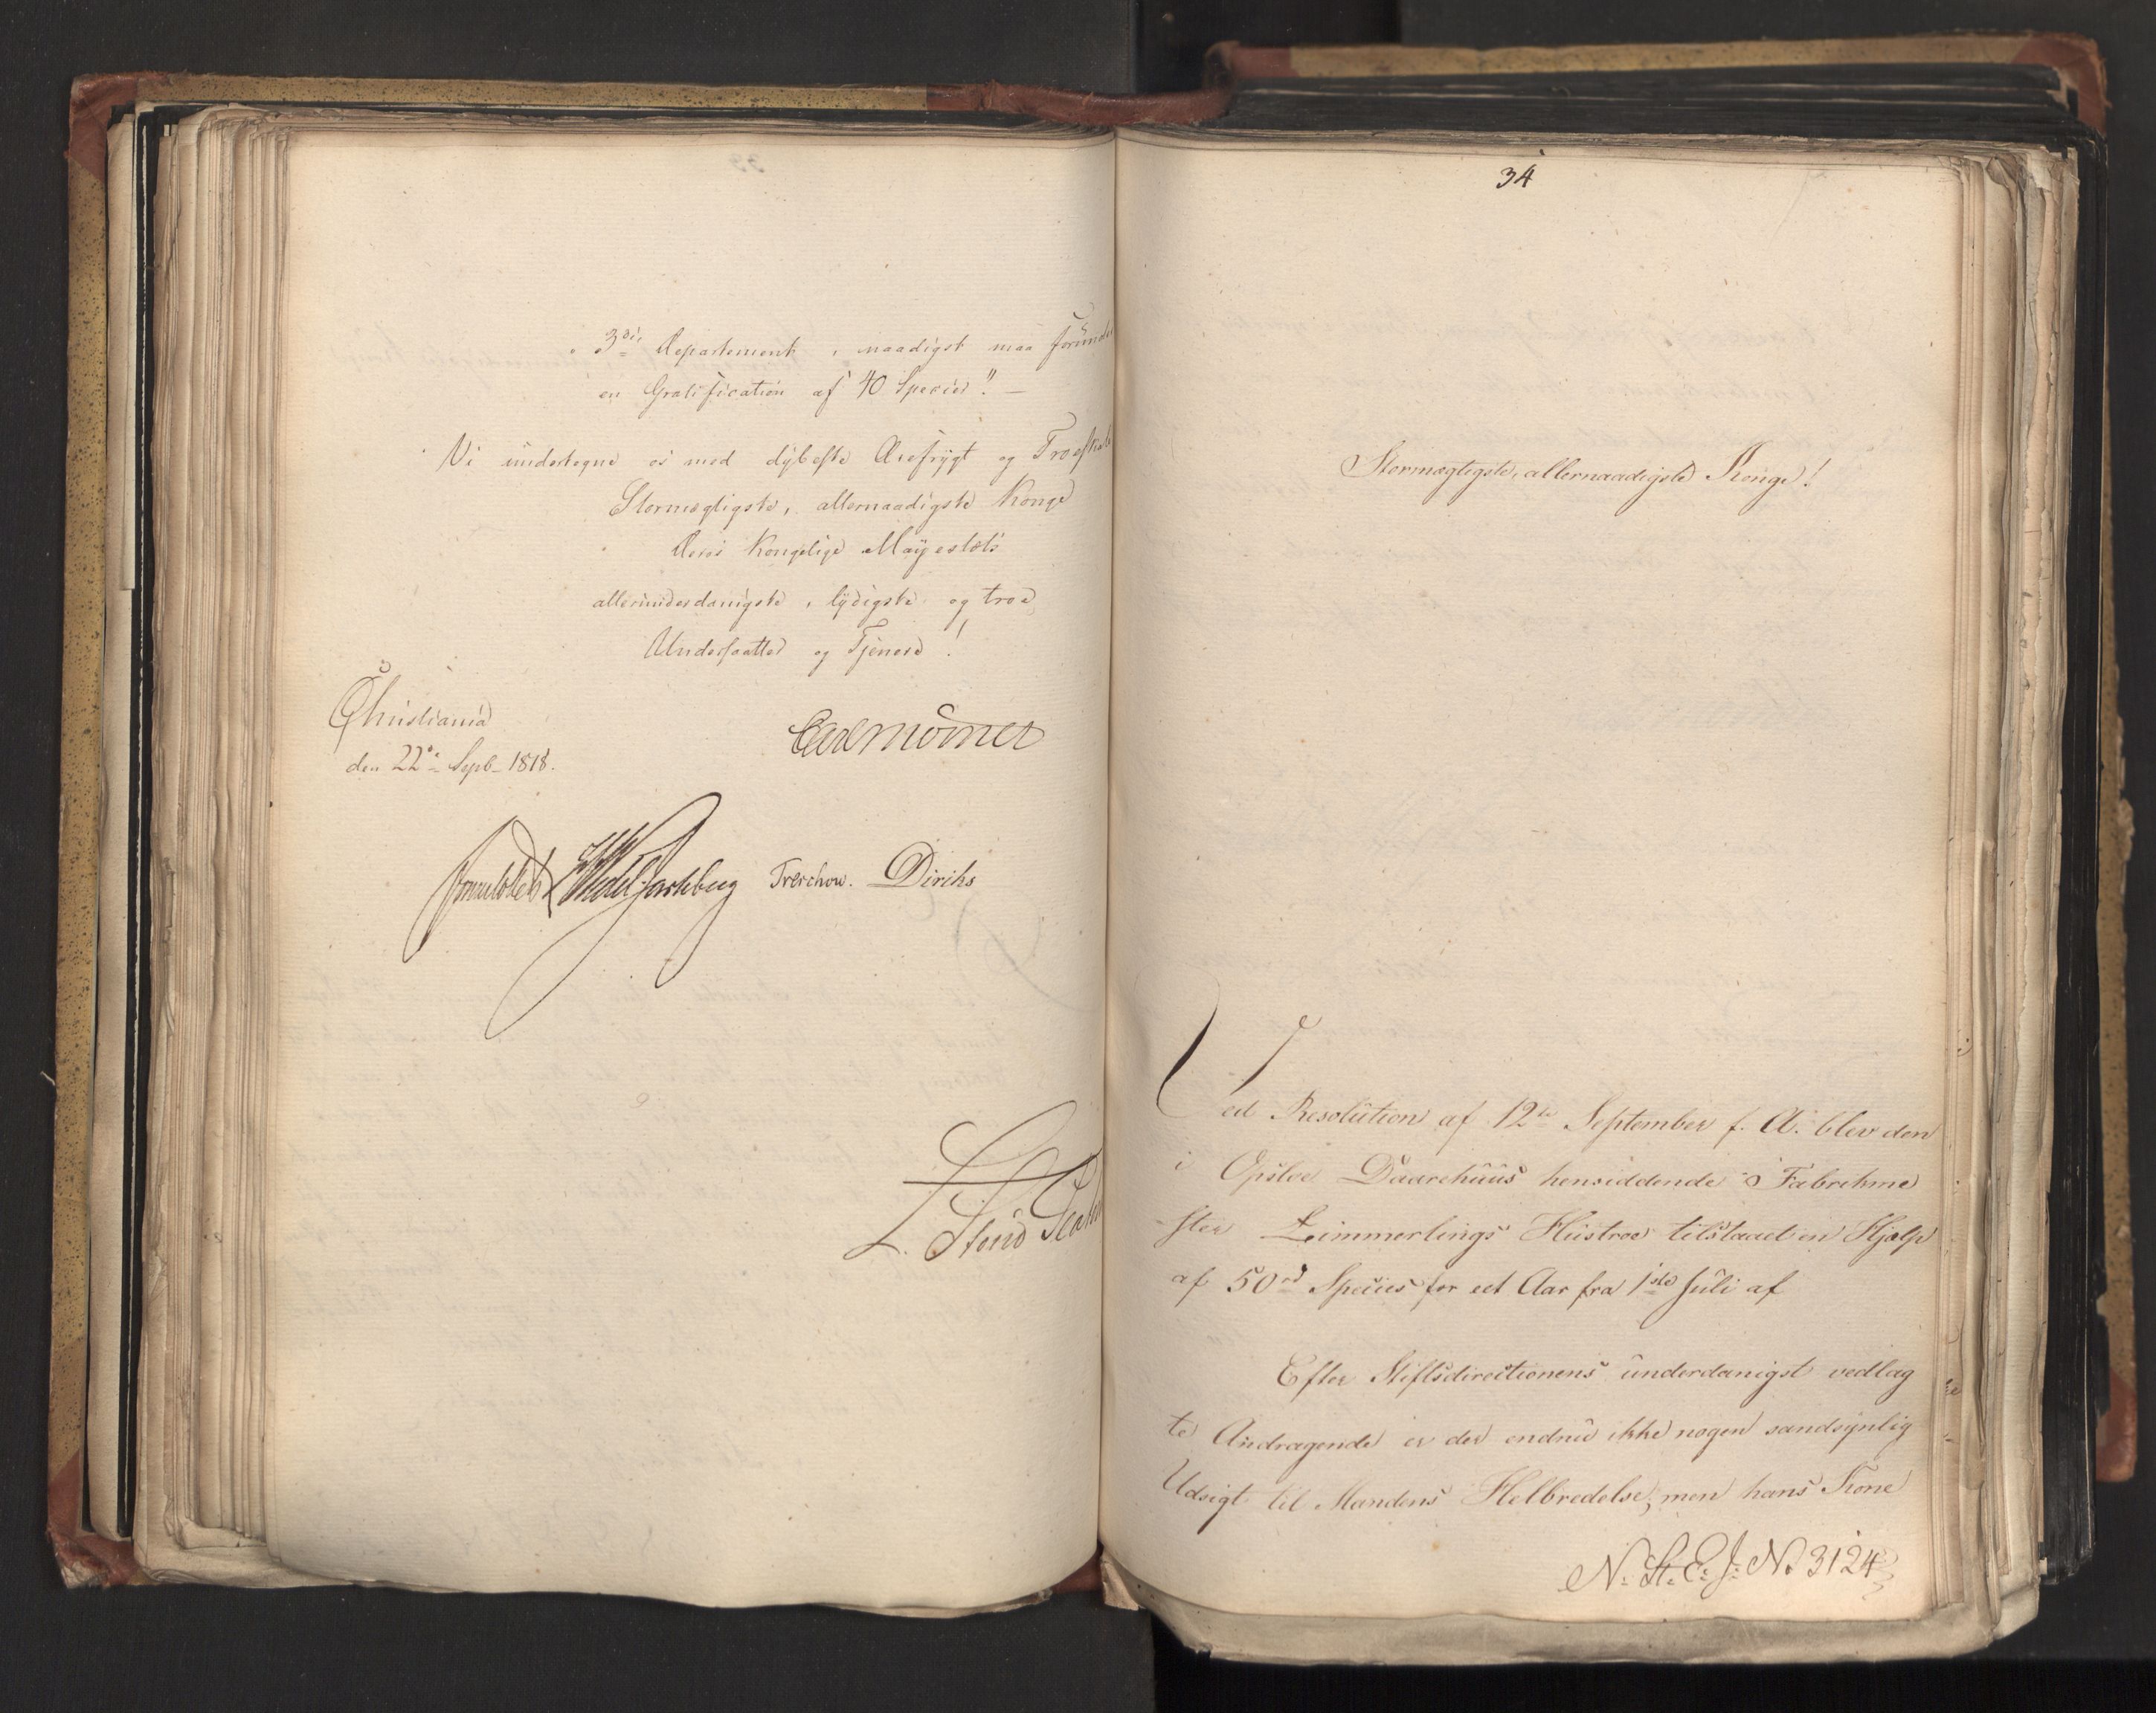 3die Departement, naadigst maa forunde
en Gratification af 40 Species". —
Vi undertegne os med dybeste Ærefrygt og Troeskab
Stormægtigste, allernaadigste Konge
Deres Kongelige Mayestæts
allerunderdanigste, lydigste og troe
Undersaatter og Tjenere!
Christiania
den 22de Sepb. 1818.
Carl Mörner
Sommerhielm HWedel Jarlsberg Treschow. Diriks
34
Stormægtigste, allernaadigste Konge!
Ved Resolution af 12te September f. A. blev den
i Opsloe Daarehuus hensiddende Fabrikme
ster Zimmerlings Hustroe tilstaaet en Hjælp
af 50rd Species for eet Aar fra 1ste Juli af
Efter Stiftsdirectionens underdanigst vedlag
te Andragende er der endnu ikke nogen sandsynlig
Udsigt til Mandens Helbredelse, men hans Kone
N: St: E: J: No 3124